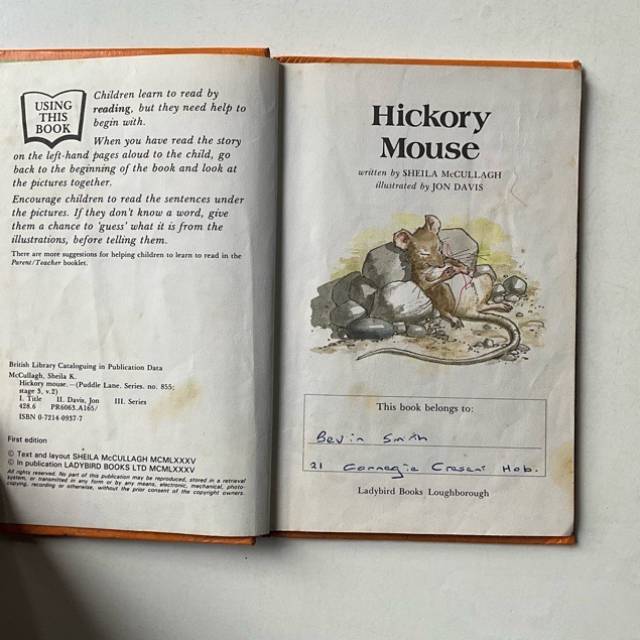 USING
THIS
BOOK
Children learn to read by
reading, but they need help to
begin with.
When you have read the story
on the left-hand pages aloud to the child, go
back to the beginning of the book and look at
the pictures together.
Encourage children to read the sentences under
the pictures. If they don't know a word, give
them a chance to 'guess' what it is from the
illustrations, before telling them.
There are more suggestions for helping children to learn to read in the
Parent/Teacher booklet.
British Library Cataloguing in Publication Data
McCullagh, Sheila K.
Hickory mouse. —(Puddle Lane. Series. no. 855;
stage 3, v.2)
I. Title II. Davis, Jon III. Series
428.6 PR6063.A165/
ISBN 0-7214-0937-7
First edition
© Text and layout SHEILA McCULLAGH MCMLXXXV
© In publication LADYBIRD BOOKS LTD MCMLXXXV
All rights reserved. No part of this publication may be reproduced, stored in a retrieval
system, or transmitted in any form or by any means, electronic, mechanical, photo-
copying, recording or otherwise, without the prior consent of the copyright owners.
Hickory
Mouse
written by SHEILA McCULLAGH
illustrated by JON DAVIS
This book belongs to:
Smith
21 Carnegie Hob.
Ladybird Books Loughborough